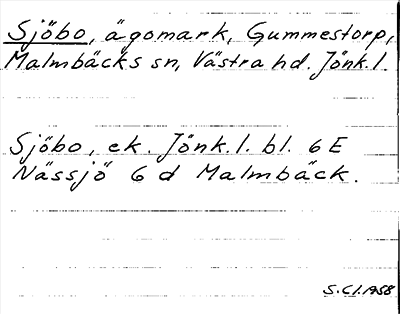 Sjöbo, ägomark, Gummestorp,
Malmbäcks sn, Västra hd. Jönk.l.
Sjöbo, ek. Jönk.l. bl. 6E
Nässjö 6 d Malmbäck.
S.Cl.1958